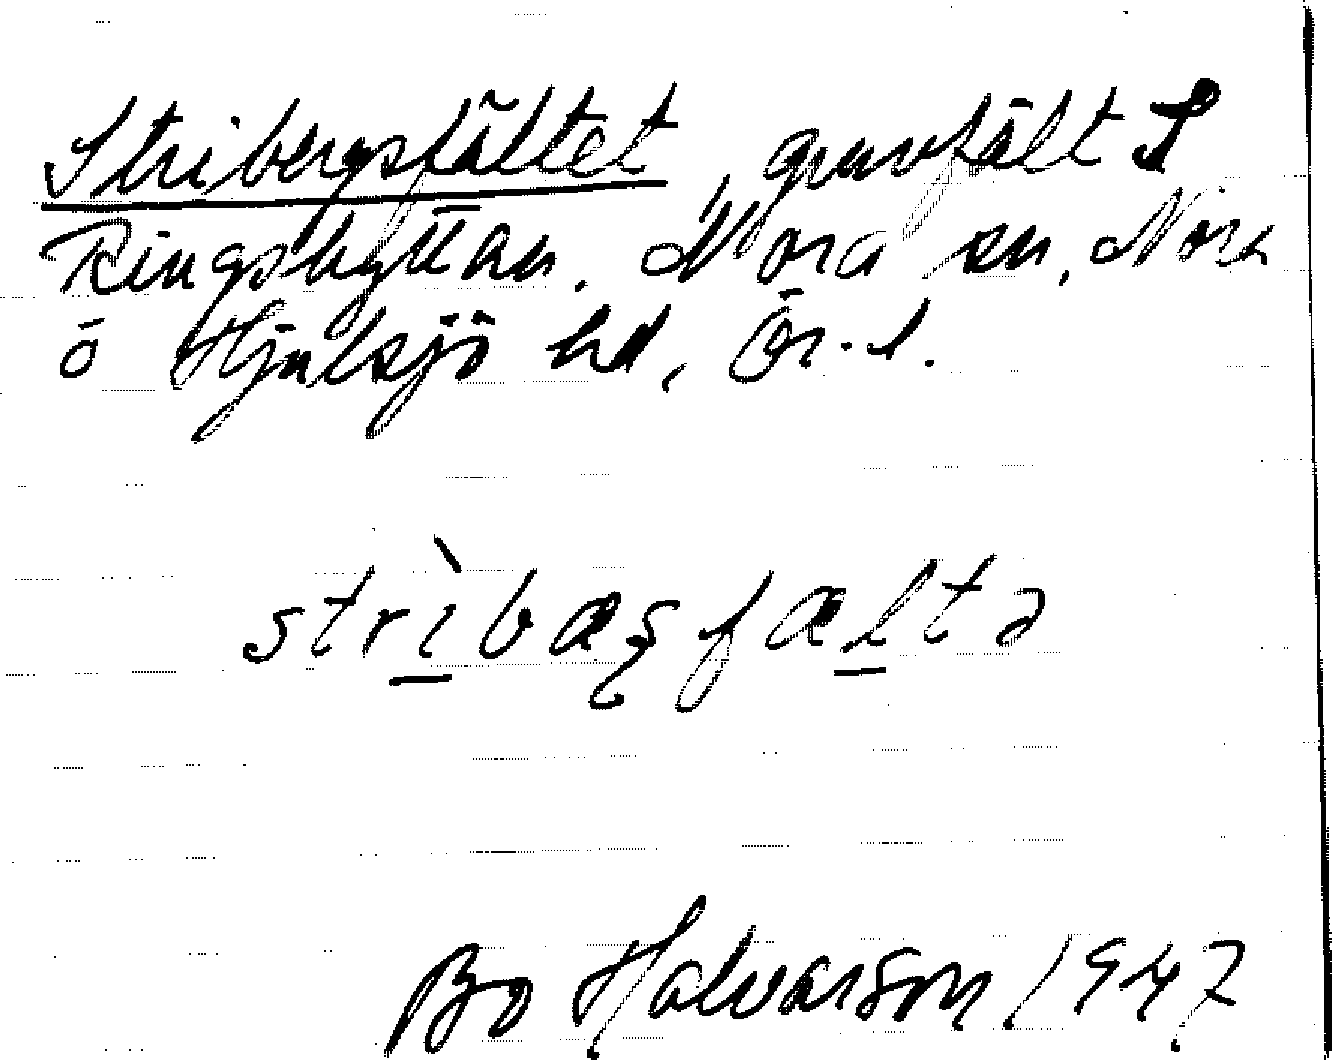 Stribergsfältet, gruvfält S
Ringshyttan. Nora sn, Nora
o Hjulsjö hd, Ör. l.
strìbæsfæltə
Bo Halvarson 1947